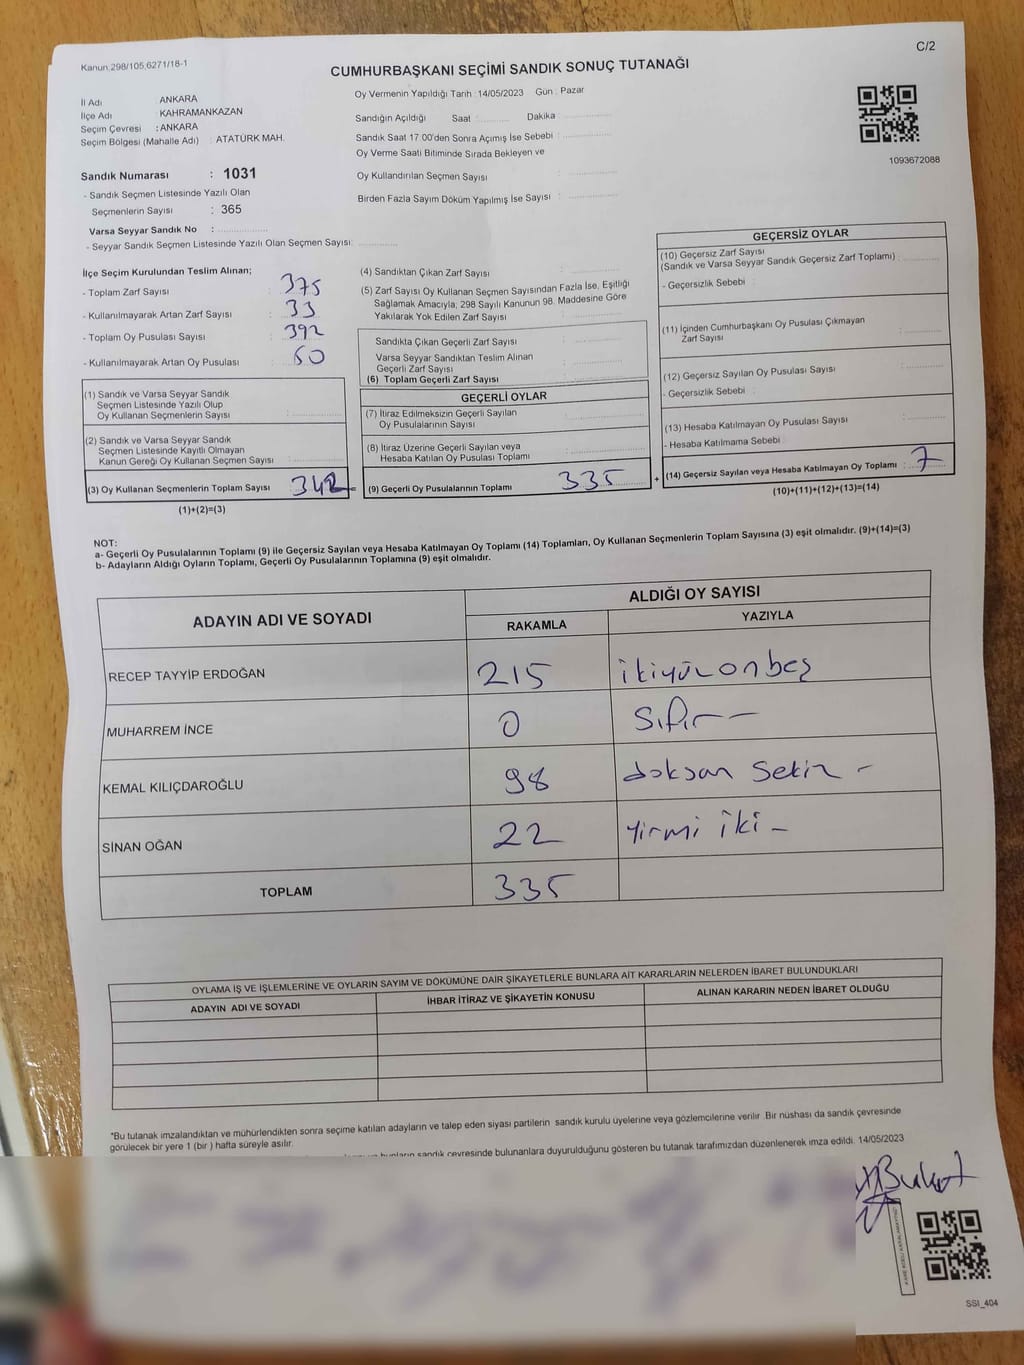 C/2
Kanun:298/105,6271/18-1
CUMHURBAŞKANI SEÇİMİ SANDIK SONUÇ TUTANAĞI
İl Adı ANKARA
İlçe Adı KAHRAMANKAZAN
Seçim Çevresi :ANKARA
Seçim Bölgesi (Mahalle Adı) : ATATÜRK MAH.
Oy Vermenin Yapıldığı Tarih : 14/05/2023 Gün : Pazar
Sandığın Açıldığı Saat : Dakika
Sandık Saat 17:00'den Sonra Açımış İse Sebebi :
Oy Verme Saati Bitiminde Sırada Bekleyen ve
Oy Kullandırılan Seçmen Sayısı :
Birden Fazla Sayım Döküm Yapılmış İse Sayısı :
1093672088
Sandık Numarası : 1031
- Sandık Seçmen Listesinde Yazılı Olan
Seçmenlerin Sayısı : 365
Varsa Seyyar Sandık No :
- Seyyar Sandık Seçmen Listesinde Yazılı Olan Seçmen Sayısı:
İlçe Seçim Kurulundan Teslim Alınan;
- Toplam Zarf Sayısı : 375
- Kullanılmayarak Artan Zarf Sayısı : 33
- Toplam Oy Pusulası Sayısı : 392
- Kullanılmayarak Artan Oy Pusulası : 50
(1) Sandık ve Varsa Seyyar Sandık
Seçmen Listesinde Yazılı Olup
Oy Kullanan Seçmenlerin Sayısı :
(2) Sandık ve Varsa Seyyar Sandık
Seçmen Listesinde Kayıtlı Olmayan
Kanun Gereği Oy Kullanan Seçmen Sayısı :
(3) Oy Kullanan Seçmenlerin Toplam Sayısı 342
(1)+(2)=(3)
(4) Sandıktan Çıkan Zarf Sayısı :
(5) Zarf Sayısı Oy Kullanan Seçmen Sayısından Fazla İse, Eşitliği
Sağlamak Amacıyla; 298 Sayılı Kanunun 98. Maddesine Göre
Yakılarak Yok Edilen Zarf Sayısı :
Sandıkta Çıkan Geçerli Zarf Sayısı :
Varsa Seyyar Sandıktan Teslim Alınan
Geçerli Zarf Sayısı :
(6) Toplam Geçerli Zarf Sayısı
GEÇERLİ OYLAR
(7) İtiraz Edilmeksizin Geçerli Sayılan
Oy Pusulalarının Sayısı :
(8) İtiraz Üzerine Geçerli Sayılan veya
Hesaba Katılan Oy Pusulası Toplamı :
(9) Geçerli Oy Pusulalarının Toplamı 335
GEÇERSİZ OYLAR
(10) Geçersiz Zarf Sayısı
(Sandık ve Varsa Seyyar Sandık Geçersiz Zarf Toplamı) :
- Geçersizlik Sebebi :
(11) İçinden Cumhurbaşkanı Oy Pusulası Çıkmayan
Zarf Sayısı :
(12) Geçersiz Sayılan Oy Pusulası Sayısı :
- Geçersizlik Sebebi :
(13) Hesaba Katılmayan Oy Pusulası Sayısı :
- Hesaba Katılmama Sebebi :
+ (14) Geçersiz Sayılan veya Hesaba Katılmayan Oy Toplamı : 7
(10)+(11)+(12)+(13)=(14)
NOT:
a- Geçerli Oy Pusulalarının Toplamı (9) ile Geçersiz Sayılan veya Hesaba Katılmayan Oy Toplamı (14) Toplamları, Oy Kullanan Seçmenlerin Toplam Sayısına (3) eşit olmalıdır. (9)+(14)=(3)
b- Adayların Aldığı Oyların Toplamı, Geçerli Oy Pusulalarının Toplamına (9) eşit olmalıdır.
ADAYIN ADI VE SOYADI ALDIĞI OY SAYISI
RAKAMLA YAZIYLA
RECEP TAYYİP ERDOĞAN 215 ikiyüz onbeş
MUHARREM İNCE 0 Sıfır
KEMAL KILIÇDAROĞLU 98 doksan sekiz -
SİNAN OĞAN 22 Yirmi iki -
TOPLAM 335
OYLAMA İŞ VE İŞLEMLERİNE VE OYLARIN SAYIM VE DÖKÜMÜNE DAİR ŞİKAYETLERLE BUNLARA AİT KARARLARIN NELERDEN İBARET BULUNDUKLARI
ADAYIN ADI VE SOYADI İHBAR İTİRAZ VE ŞİKAYETİN KONUSU ALINAN KARARIN NEDEN İBARET OLDUĞU
*Bu tutanak imzalandıktan ve mühürlendikten sonra seçime katılan adayların ve talep eden siyasi partilerin sandık kurulu üyelerine veya gözlemcilerine verilir. Bir nüshası da sandık çevresinde
görülecek bir yere 1 (bir ) hafta süreyle asılır.
bunların sandık çevresinde bulunanlara duyurulduğunu gösteren bu tutanak tarafımızdan düzenlenerek imza edildi. 14/05/2023
SSI_404